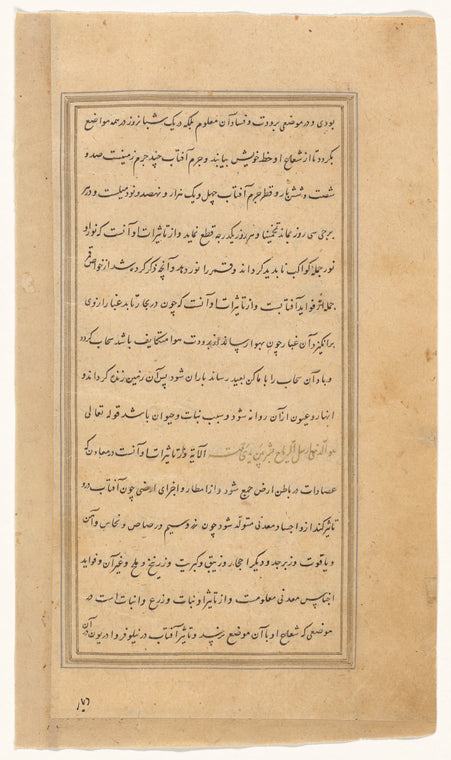 بودی و در موضعی برودت و فساد آن معلوم بلکه در یک شبانروز در همه مواضع
بگردد تا از شعاع او حظ خویش بیابند و جرم آفتاب چند جرم زمینست صد و
شصت و شش بار و قطر جرم آفتاب چهل و یک هزار و نهصد و نود میلست و در هر
برجی سی روز بماند تخمینا و هر روز یکدرجه قطع نماید و از تاثیرات او آنست که نور او
نور جمله کواکب ناپدید گرداند و قمر را نور دهد و آنچه ذکر کرده شد از خواص قمر
جمله اثر فواید آفتابست و از تاثیرات او آنست که چون در بحار تابد غبار از وی
برانگیزد آن غبار چون بهوا رساند از برودت هوا متکاثف باشد سحاب گردد
و باد آن سحاب را باماکن بعید رساند باران شود پس آن زمین زنده گرداند و
انهار و عیون از آن روانه شود و سبب نبات و حیوان باشد قوله تعالی
هو الذی ارسل الریاح بشرا بین یدی رحمته الآیة و از تاثیرات او آنست در معادن که
عصارات در باطن ارض جمع شود و از امطار و اجزای ارضی چون آفتاب در و
تاثیر کند ازو اجساد معدنی متولد شود چون زر و سیم و رصاص و نحاس و آهن
و یاقوت و زبرجد و دیگر احجار و زیبق و کبریت و زرنیخ و ملح و غیر آن و فواید
اجناس معدنی معلومست و از تاثیر او نبات و زرع و انبات است در
موضعی که شعاع او با آن موضع رسد و تاثیر آفتاب در نیلوفر و آذریون آن